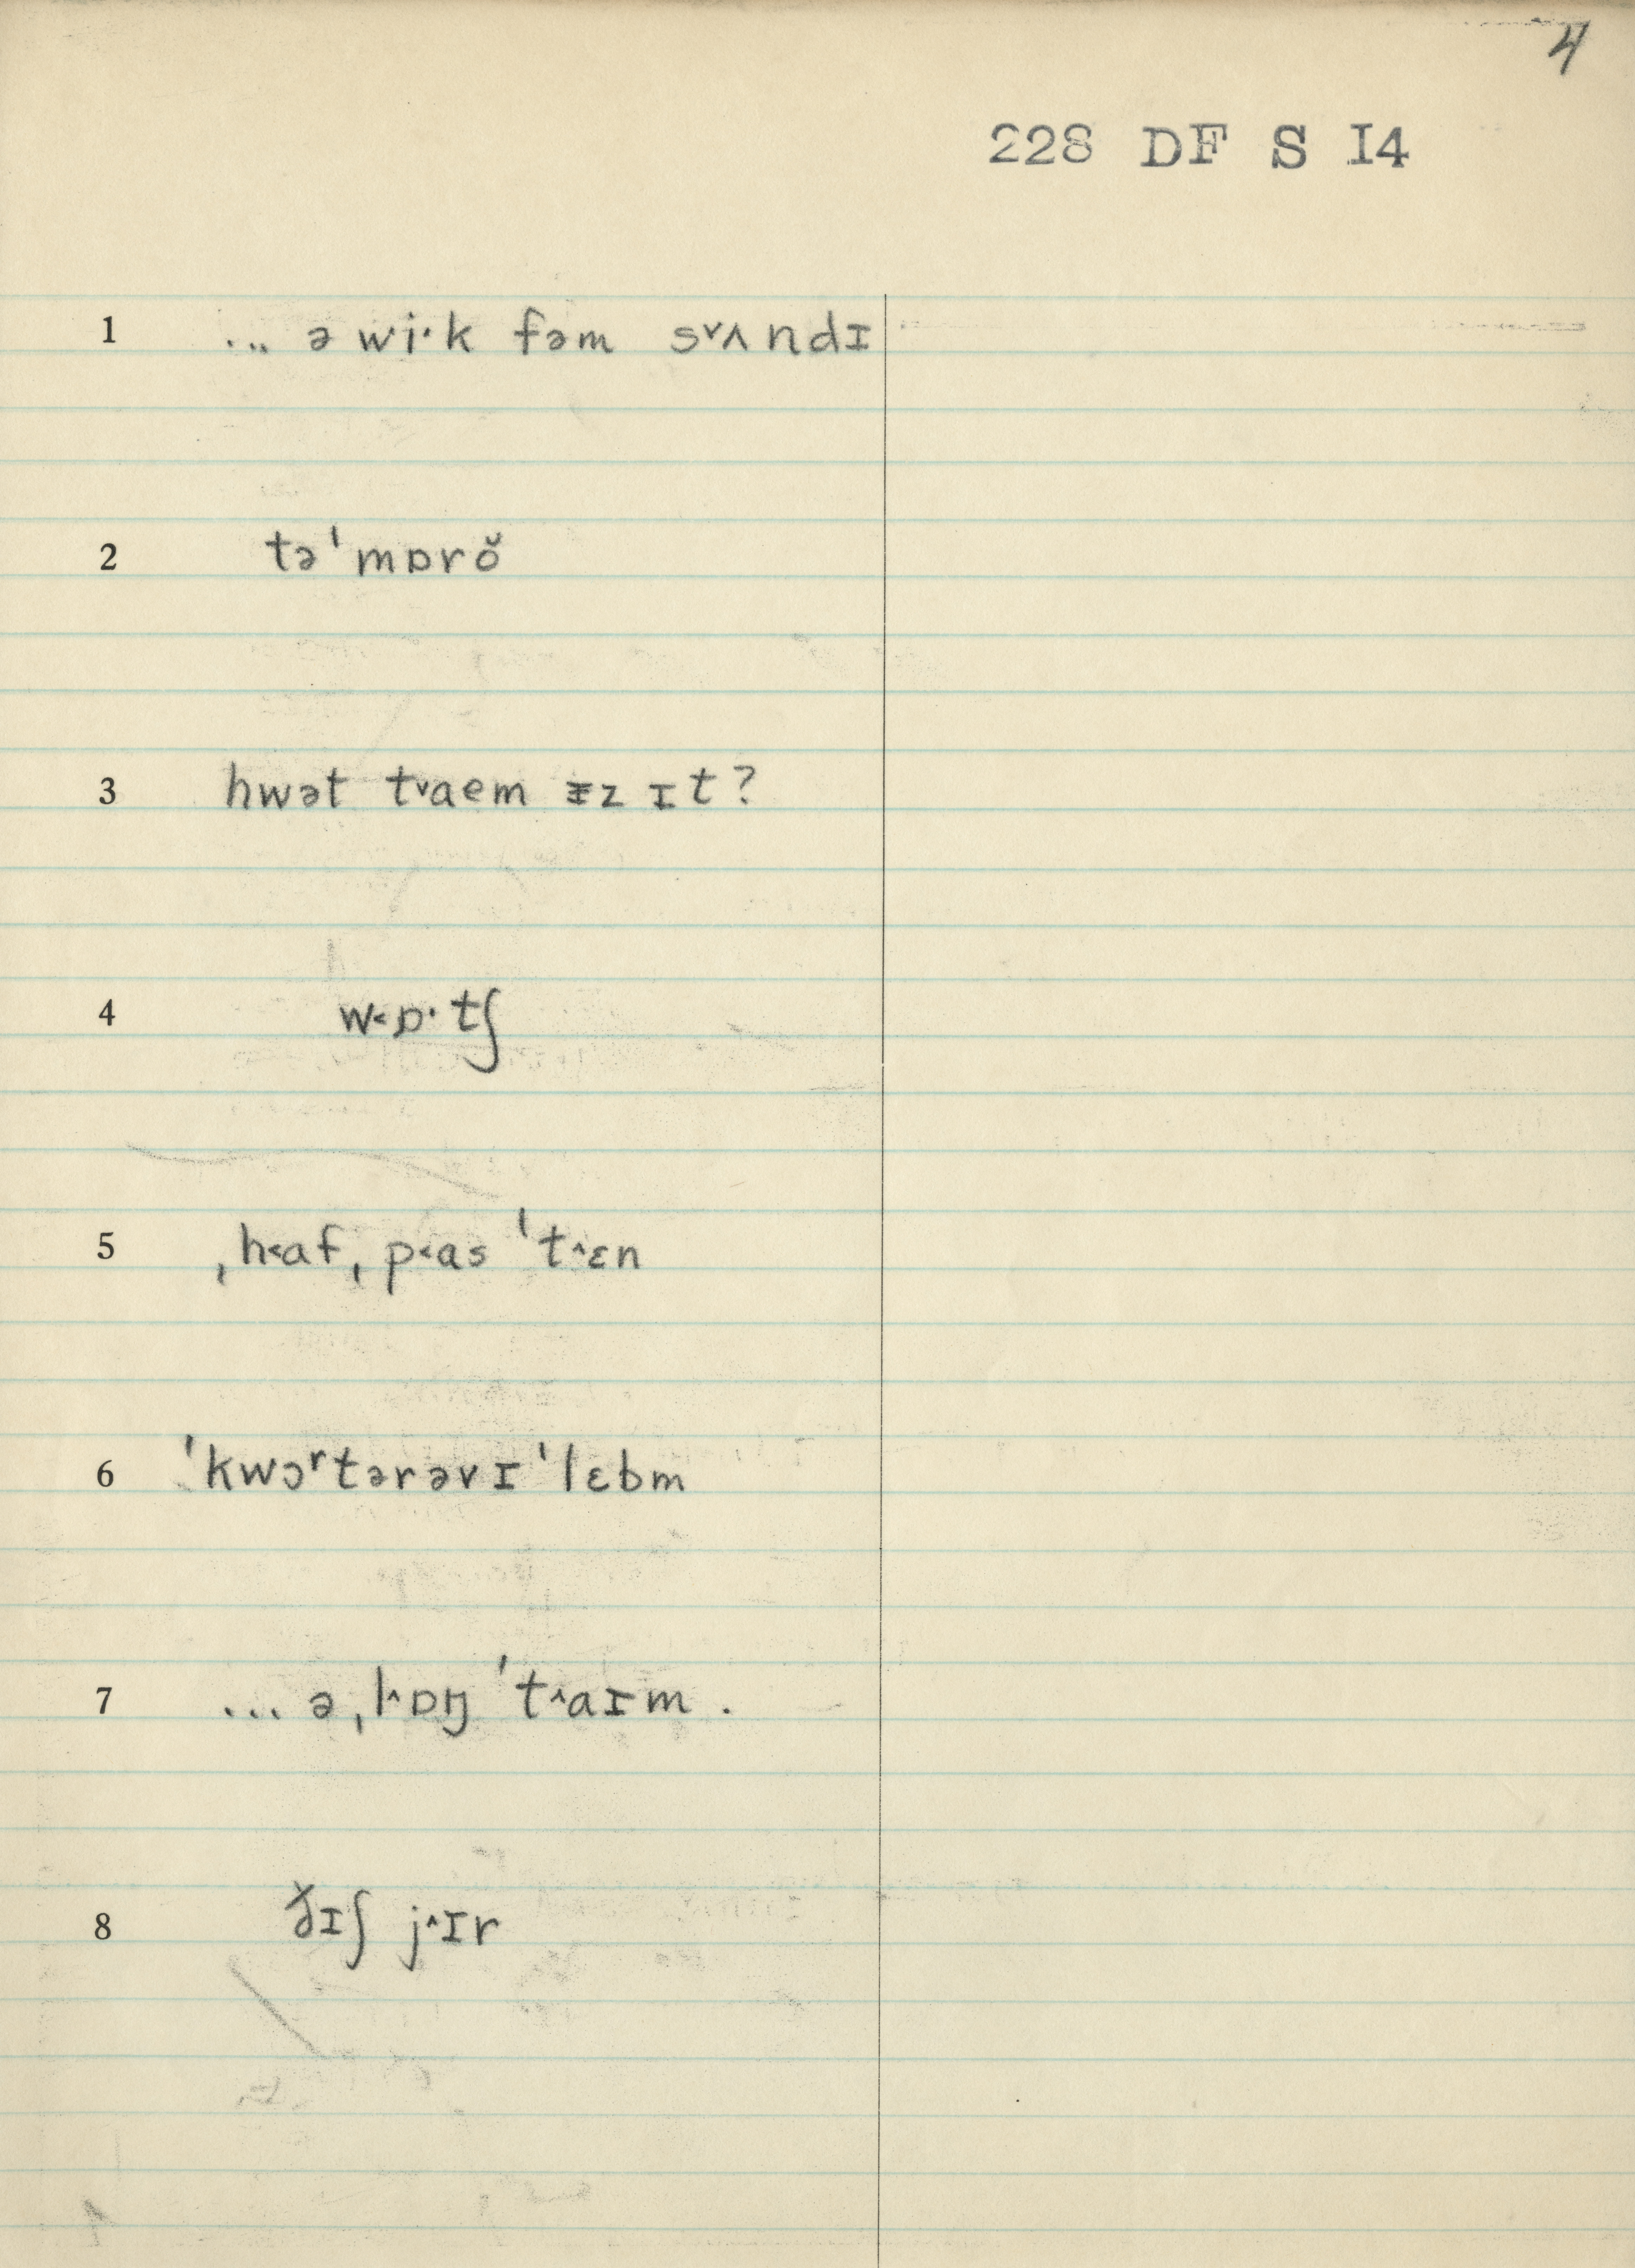 4
228 DF S I4
1 ... ə wi·k fəm s˅ʌndɪ
2 tə'mɒrŏ
3 hwət t˅aem ᵻz ɪt?
4 w˂ɒ·tʃ
5 ˌh˂afˌp˂as 't˄ɛn
6 'kwɔʳtərəvɪ'lɛbm
7 ... əˌl˄ɒŋ 't˄aɪm.
8 ð̌ɪʃ j˄ɪr